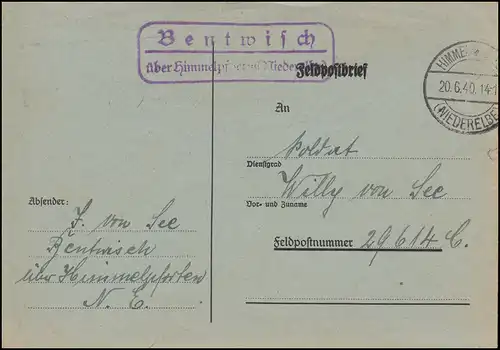 Bentwisch
über Himmelpforten (Niederelbe)
Feldpostbrief
HIMMELPFORTEN
20.6.40.14-1
(NIEDERELBE)
An
Soldat
Dienstgrad
Willy von See
Vor- und Zuname
Feldpostnummer 29614 C.
Absender:
J. von See
Bentwisch
über Himmelpforten
N. E.